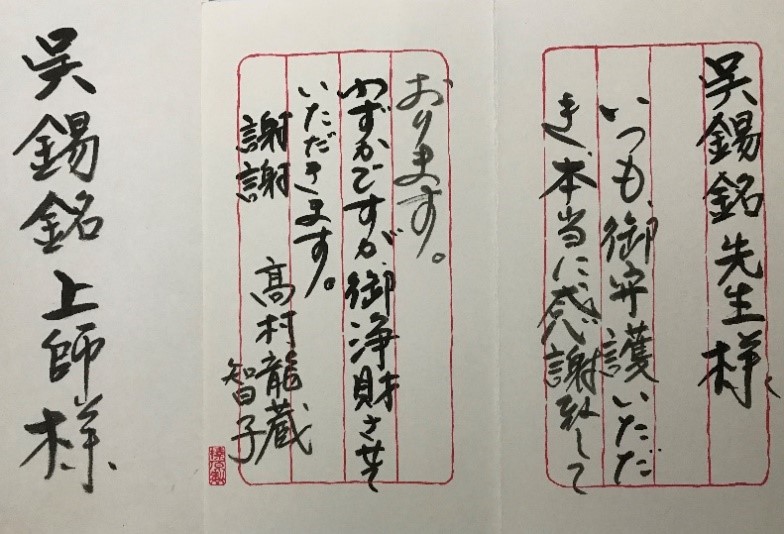 呉錫銘先生様
いつも、御守護いただ
き、本当に感謝致して
おります。
わずかですが、御浄財させて
いただきます。
謝謝 高村龍蔵
智子
呉錫銘上師様